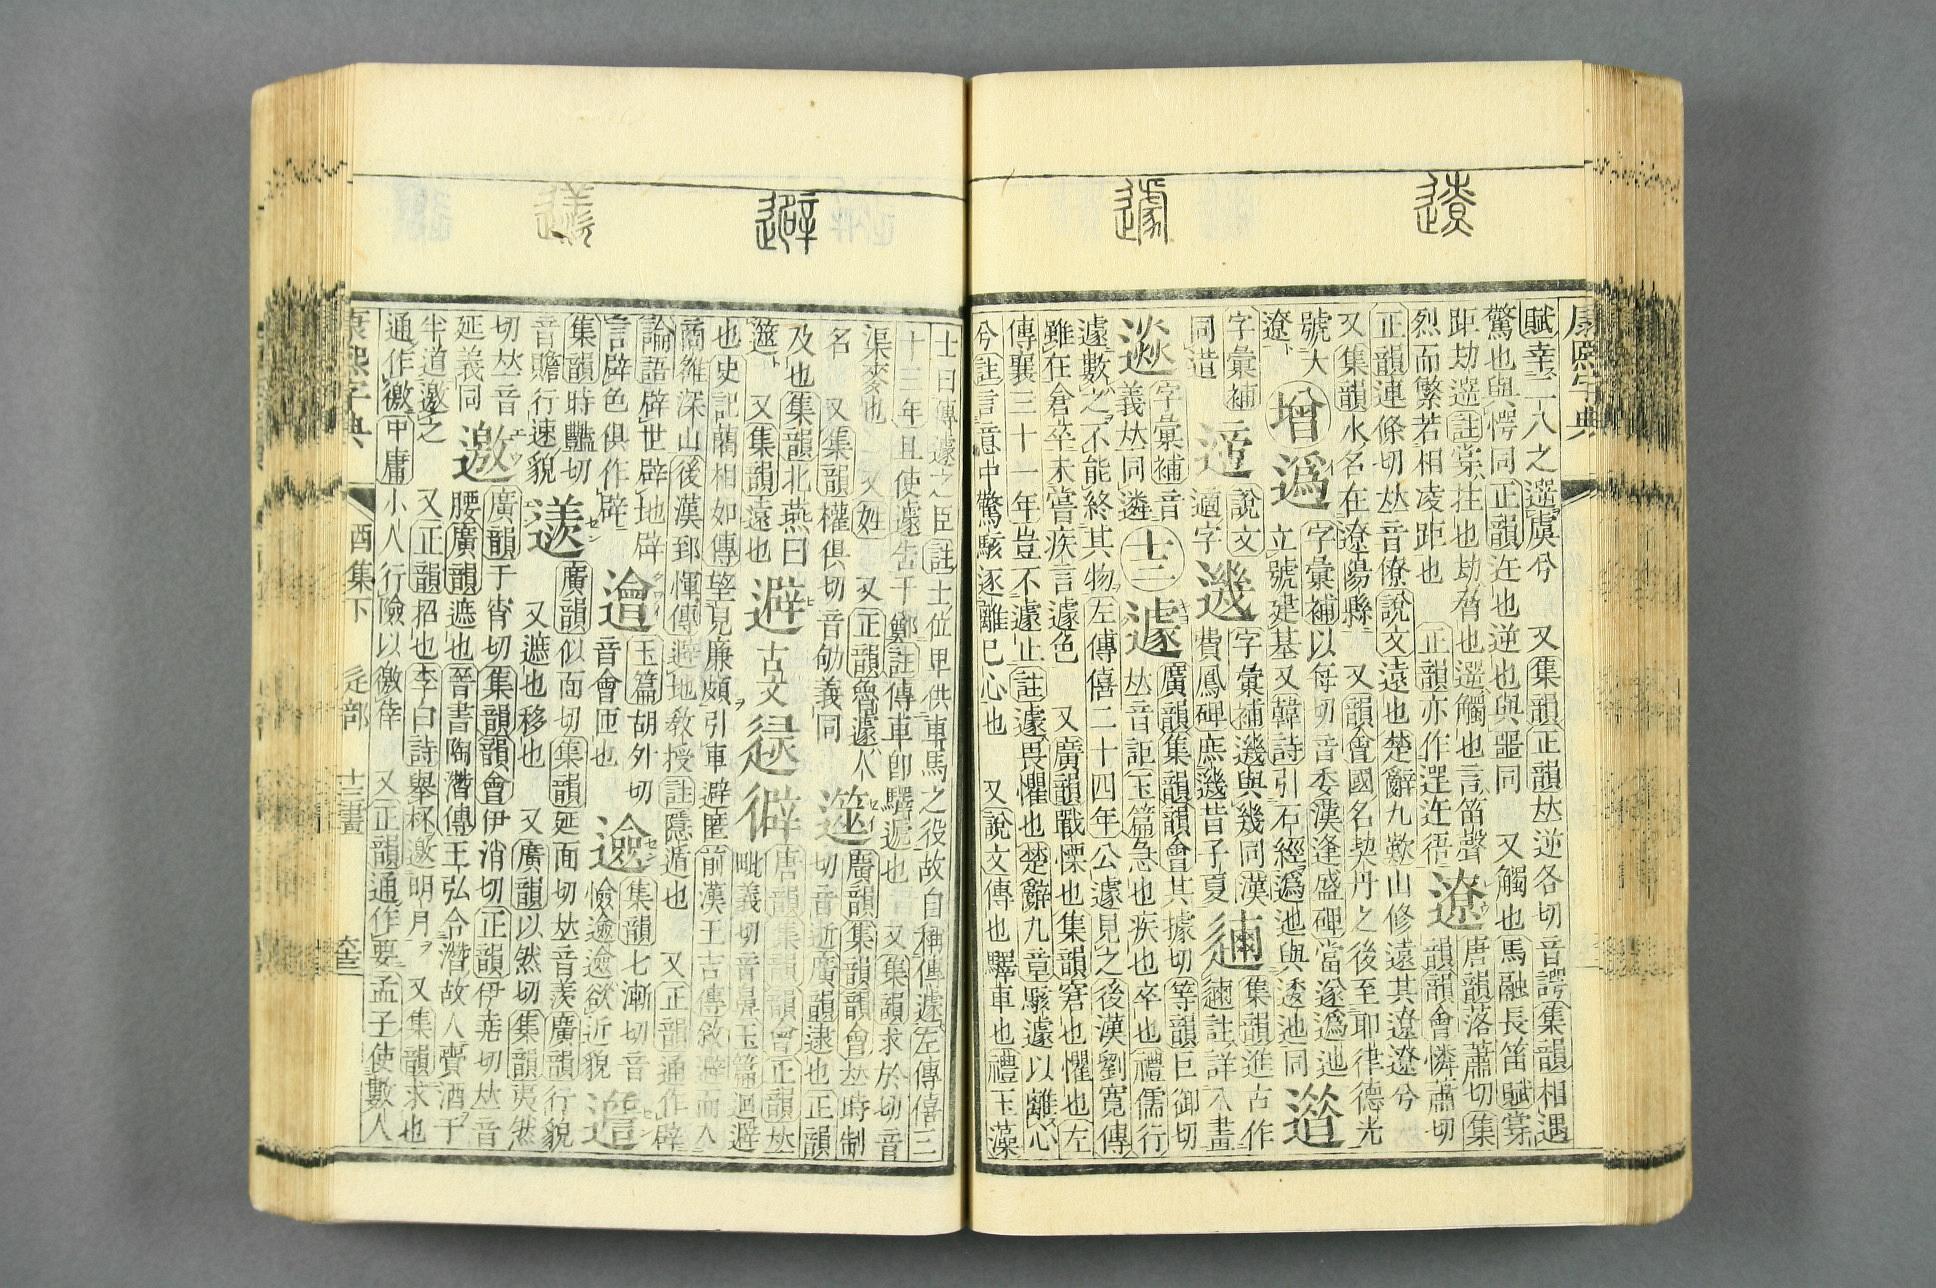 遼
遽
避
康熙字典
賦幸二八之遻虞兮 又集韻正韻𠀤逆各切音諤集韻相遇
驚也與愕同正韻迕也逆也與噩同 又觸也馬融長笛賦㝑
距劫遻註㝑拄也劫脅也遻觸也言笛聲 唐韻落蕭切集
烈而繁若相凌距也 正韻亦作逜迕啎 遼 韻韻會憐蕭切
正韻連條切𠀤音僚說文遠也楚辭九歎山修遠其遼遼兮
又集韻水名在遼陽縣 又韻會國名契丹之後至耶律德光
號大 字彙補以每切音委漢逢盛碑當遂䢬迆
遼 增 䢬 立號建基又韓詩引石經䢬迆與逶迆同
字彙補 說文 字彙補𨘢與幾同漢 集韻進古作
同造 適字 𨘢 費鳳碑庶𨘢昔子夏 註詳八畫
字彙補音 廣韻集韻韻會其據切等韻巨御切
義𠀤同遴 十二 遽 𠀤音詎玉篇急也疾也卒也禮儒行
遽數之不能終其物左傳僖二十四年公遽見之後漢劉寬傳
雖在倉卒未嘗疾言遽色 又廣韻戰慄也集韻窘也懼也左
傳襄三十一年豈不遽止註遽畏懼也楚辭九章駭遽以離心
兮註言意中驚駭遂離己心也 又說文傳也驛車也禮玉藻
士曰傳遽之臣註士位卑供車馬之役故自稱傳遽左傳僖三
十三年且使遽告于鄭註傳車卽驛遞也 又集韻求於切音
渠麥也 又姓 又正韻魯遽人 廣韻集韻韻會𠀤時制
名 又集韻權俱切音劬義同 遾 切音逝廣韻逮也正韻
及也集韻北燕曰 唐韻集韻韻會正韻𠀤
遾 又集韻遠也 避 古文 毗義切音鼻玉篇迴避
也史記藺相如傳望見廉頗引車避匿前漢王吉傳斂避而入
商雒深山後漢郅惲傳避地敎授註隱遁也 又正韻通作辟
論語辟世辟地辟 玉篇胡外切 集韻七漸切音
言辟色俱作辟 音會匝也 憸 欲近貌
集韻時豔切 廣韻似面切集韻延面切𠀤音羨廣韻行貌
音贍行速貌 又遮也移也 又廣韻以然切集韻夷然
切𠀤音 廣韻于宵切集韻韻會伊消切正韻伊堯切𠀤音
延義同 邀 腰廣韻遮也晉書陶潛傳王弘令潛故人齎酒于
半道邀之 又正韻招也李白詩舉杯邀明月 又集韻求也
通作徼中庸小人行險以徼倖 又正韻通作要孟子使數人
康熙字典 酉集下 辵部 十三畫